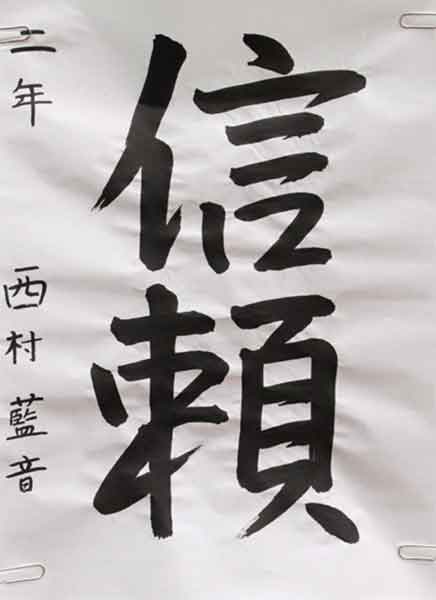 信頼
二年 西村藍音